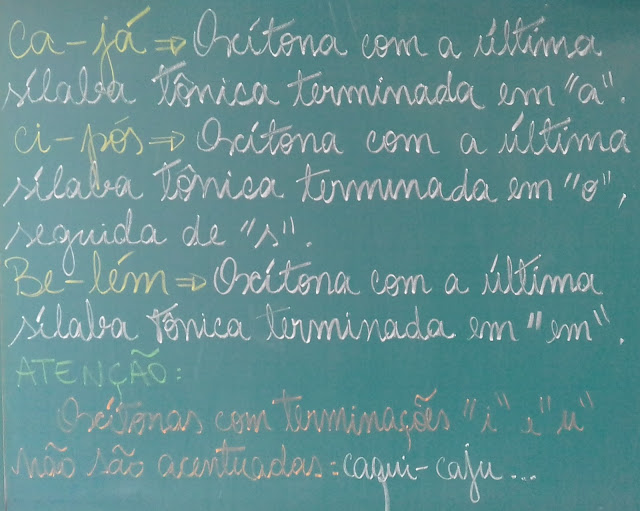 Ca-já => Oxítona com a última
sílaba tônica terminada em "a".
ci-pós => Oxítona com a última
sílaba tônica terminada em "o",
seguida de "s".
Be-lém => Oxítona com a última
sílaba tônica terminada em "em".
ATENÇÃO:
Oxítonas com terminações "i" e "u"
não são acentuadas: caqui-caju...